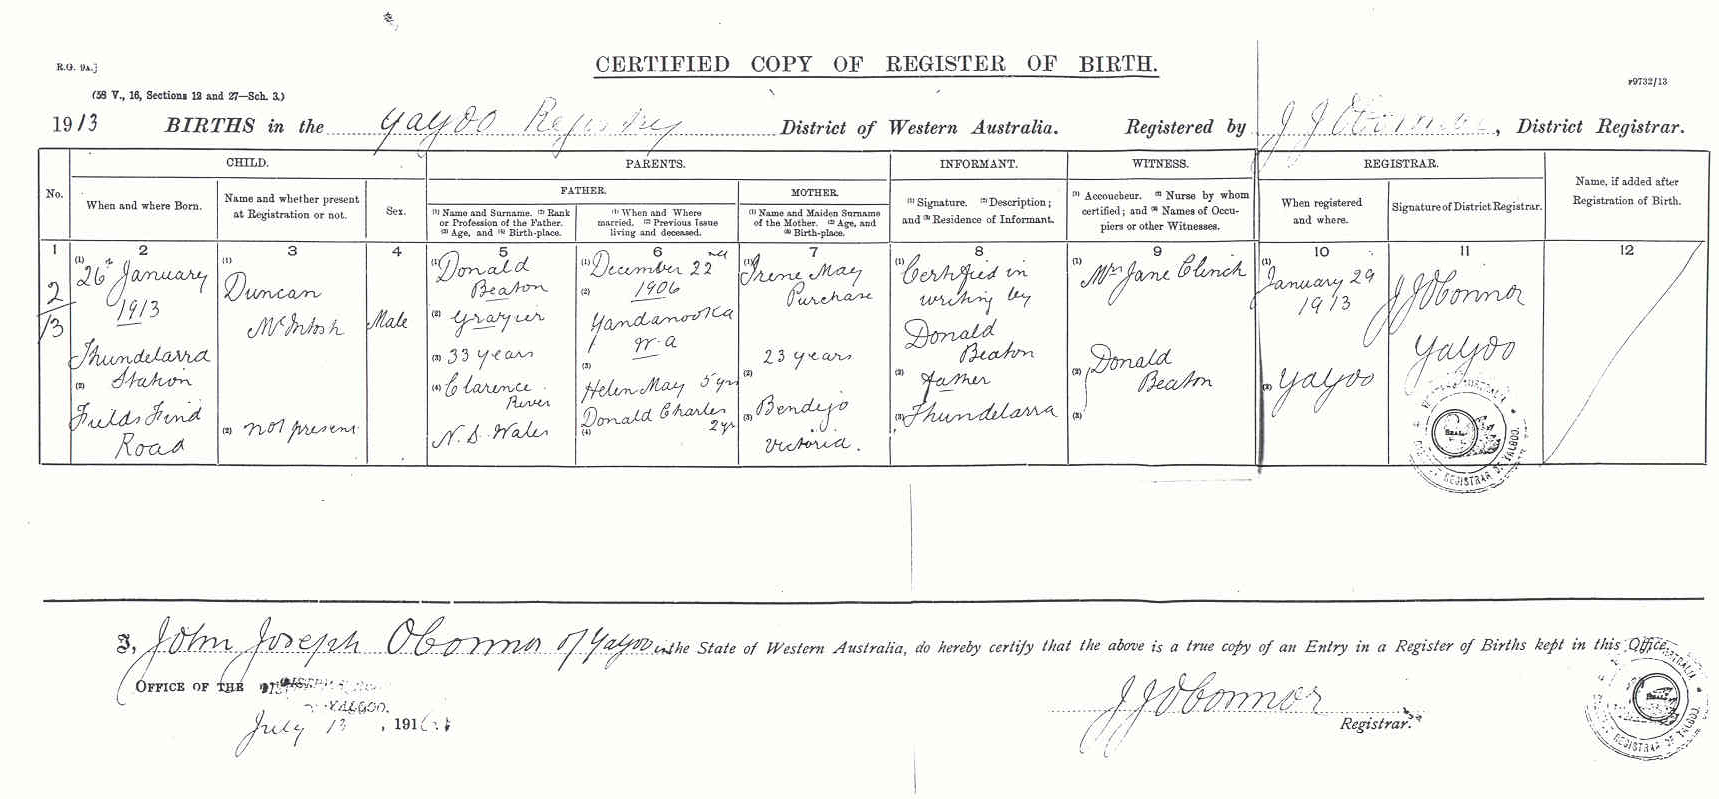 CERTIFIED COPY OF REGISTER OF BIRTH.
R.G. 9A.]
P9732/13
(58 V., 16, Sections 12 and 27—Sch. 3.)
1913 BIRTHS in the Yalgoo Registry District of Western Australia. Registered by J J OConnor, District Registrar.
No.
CHILD.
PARENTS.
INFORMANT.
WITNESS.
REGISTRAR.
Name, if added after
Registration of Birth.
When and where Born.
Name and whether present
at Registration or not.
Sex.
FATHER.
MOTHER.
(1) Name and Surname. (2) Rank
or Profession of the Father.
(3) Age, and (4) Birth-place.
(1) When and Where
married. (2) Previous Issue
living and deceased.
(1) Name and Maiden Surname
of the Mother. (2) Age, and
(3) Birth-place.
(1) Signature. (2) Description;
and (3) Residence of Informant.
(1) Accoucheur. (2) Nurse by whom
certified; and (3) Names of Occu-
piers or other Witnesses.
When registered
and where.
Signature of District Registrar.
1 2 3 4 5 6 7 8 9 10 11 12
2/13
(1) 26th January
1913
Thundelarra
(2) Station
Fields Find
Road
(1)
Duncan
McIntosh
(2) not present
Male
(1) Donald
Beaton
(2) Grazier
(3) 33 years
(4) Clarence
River
N.S. Wales
(1) December 22nd
(2) 1906
Yandanooka
W.A
(3)
Helen May 5 yrs
Donald Charles
2 yrs
(4)
(1) Irene May
Purchase
23 years
(2)
(3) Bendigo
Victoria.
(1) Certified in
writing by
Donald
Beaton
(2) father
(3) Thundelarra
(1) Mrs Jane Clinch
(2) Donald
Beaton
(3)
(1) January 29
1913
(2) Yalgoo
J J OConnor
Yalgoo
SEAL
DISTRICT REGISTRAR OF YALGOO.
I, John Joseph OConnor of Yalgoo in the State of Western Australia, do hereby certify that the above is a true copy of an Entry in a Register of Births kept in this Office.
OFFICE OF THE
YALGOO.
July 13, 191
J J OConnor
Registrar.
REGISTRAR OF YALGOO.